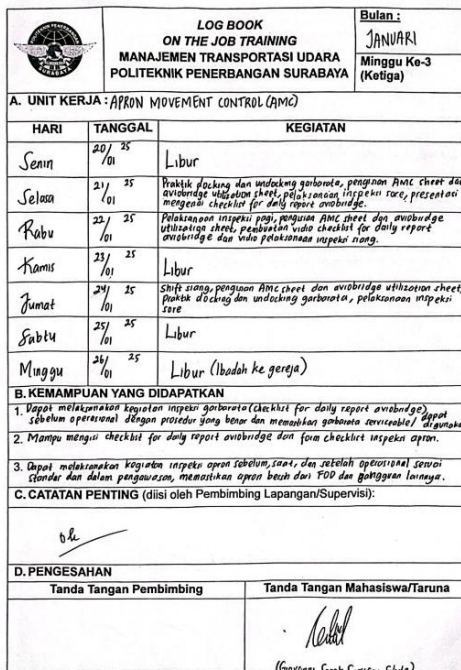 POLITEKNIK PENERBANGAN
SURABAYA
LOG BOOK
ON THE JOB TRAINING
MANAJEMEN TRANSPORTASI UDARA
POLITEKNIK PENERBANGAN SURABAYA
Bulan :
JANUARI
Minggu Ke-3
(Ketiga)
A. UNIT KERJA : APRON MOVEMENT CONTROL (AMC)
HARI TANGGAL KEGIATAN
Senin 20/01 25 Libur
Selasa 21/01 25 Praktik docking dan undocking garbarata, pengisian AMC sheet dan
aviobridge utilization sheet, pelaksanaan inspeksi sore, presentasi
mengenai checklist for daily report aviobridge.
Rabu 22/01 25 Pelaksanaan inspeksi pagi, pengisian AMC sheet dan aviobridge
utilization sheet, pembuatan vidio checklist for daily report
aviobridge dan vidio pelaksanaan inspeksi siang.
Kamis 23/01 25 Libur
Jumat 24/01 25 Shift siang, pengisian AMC sheet dan aviobridge utilization sheet,
praktik docking dan undocking garbarata, pelaksanaan inspeksi
sore
Sabtu 25/01 25 Libur
Minggu 26/01 25 Libur (Ibadah ke gereja)
B. KEMAMPUAN YANG DIDAPATKAN
1. Dapat melaksanakan kegiatan inspeksi garbarata (checklist for daily report aviobridge)
sebelum operasional dengan prosedur yang benar dan memastikan garbarata serviceable/ dapat digunakan
2. Mampu mengisi checklist for daily report aviobridge dan form checklist inspeksi apron.
3. Dapat melaksanakan kegiatan inspeksi apron sebelum, saat, dan setelah operasional sesuai
standar dan dalam pengawasan, memastikan apron bersih dari FOD dan gangguan lainnya.
C. CATATAN PENTING (diisi oleh Pembimbing Lapangan/Supervisi):
ok
D. PENGESAHAN
Tanda Tangan Pembimbing Tanda Tangan Mahasiswa/Taruna